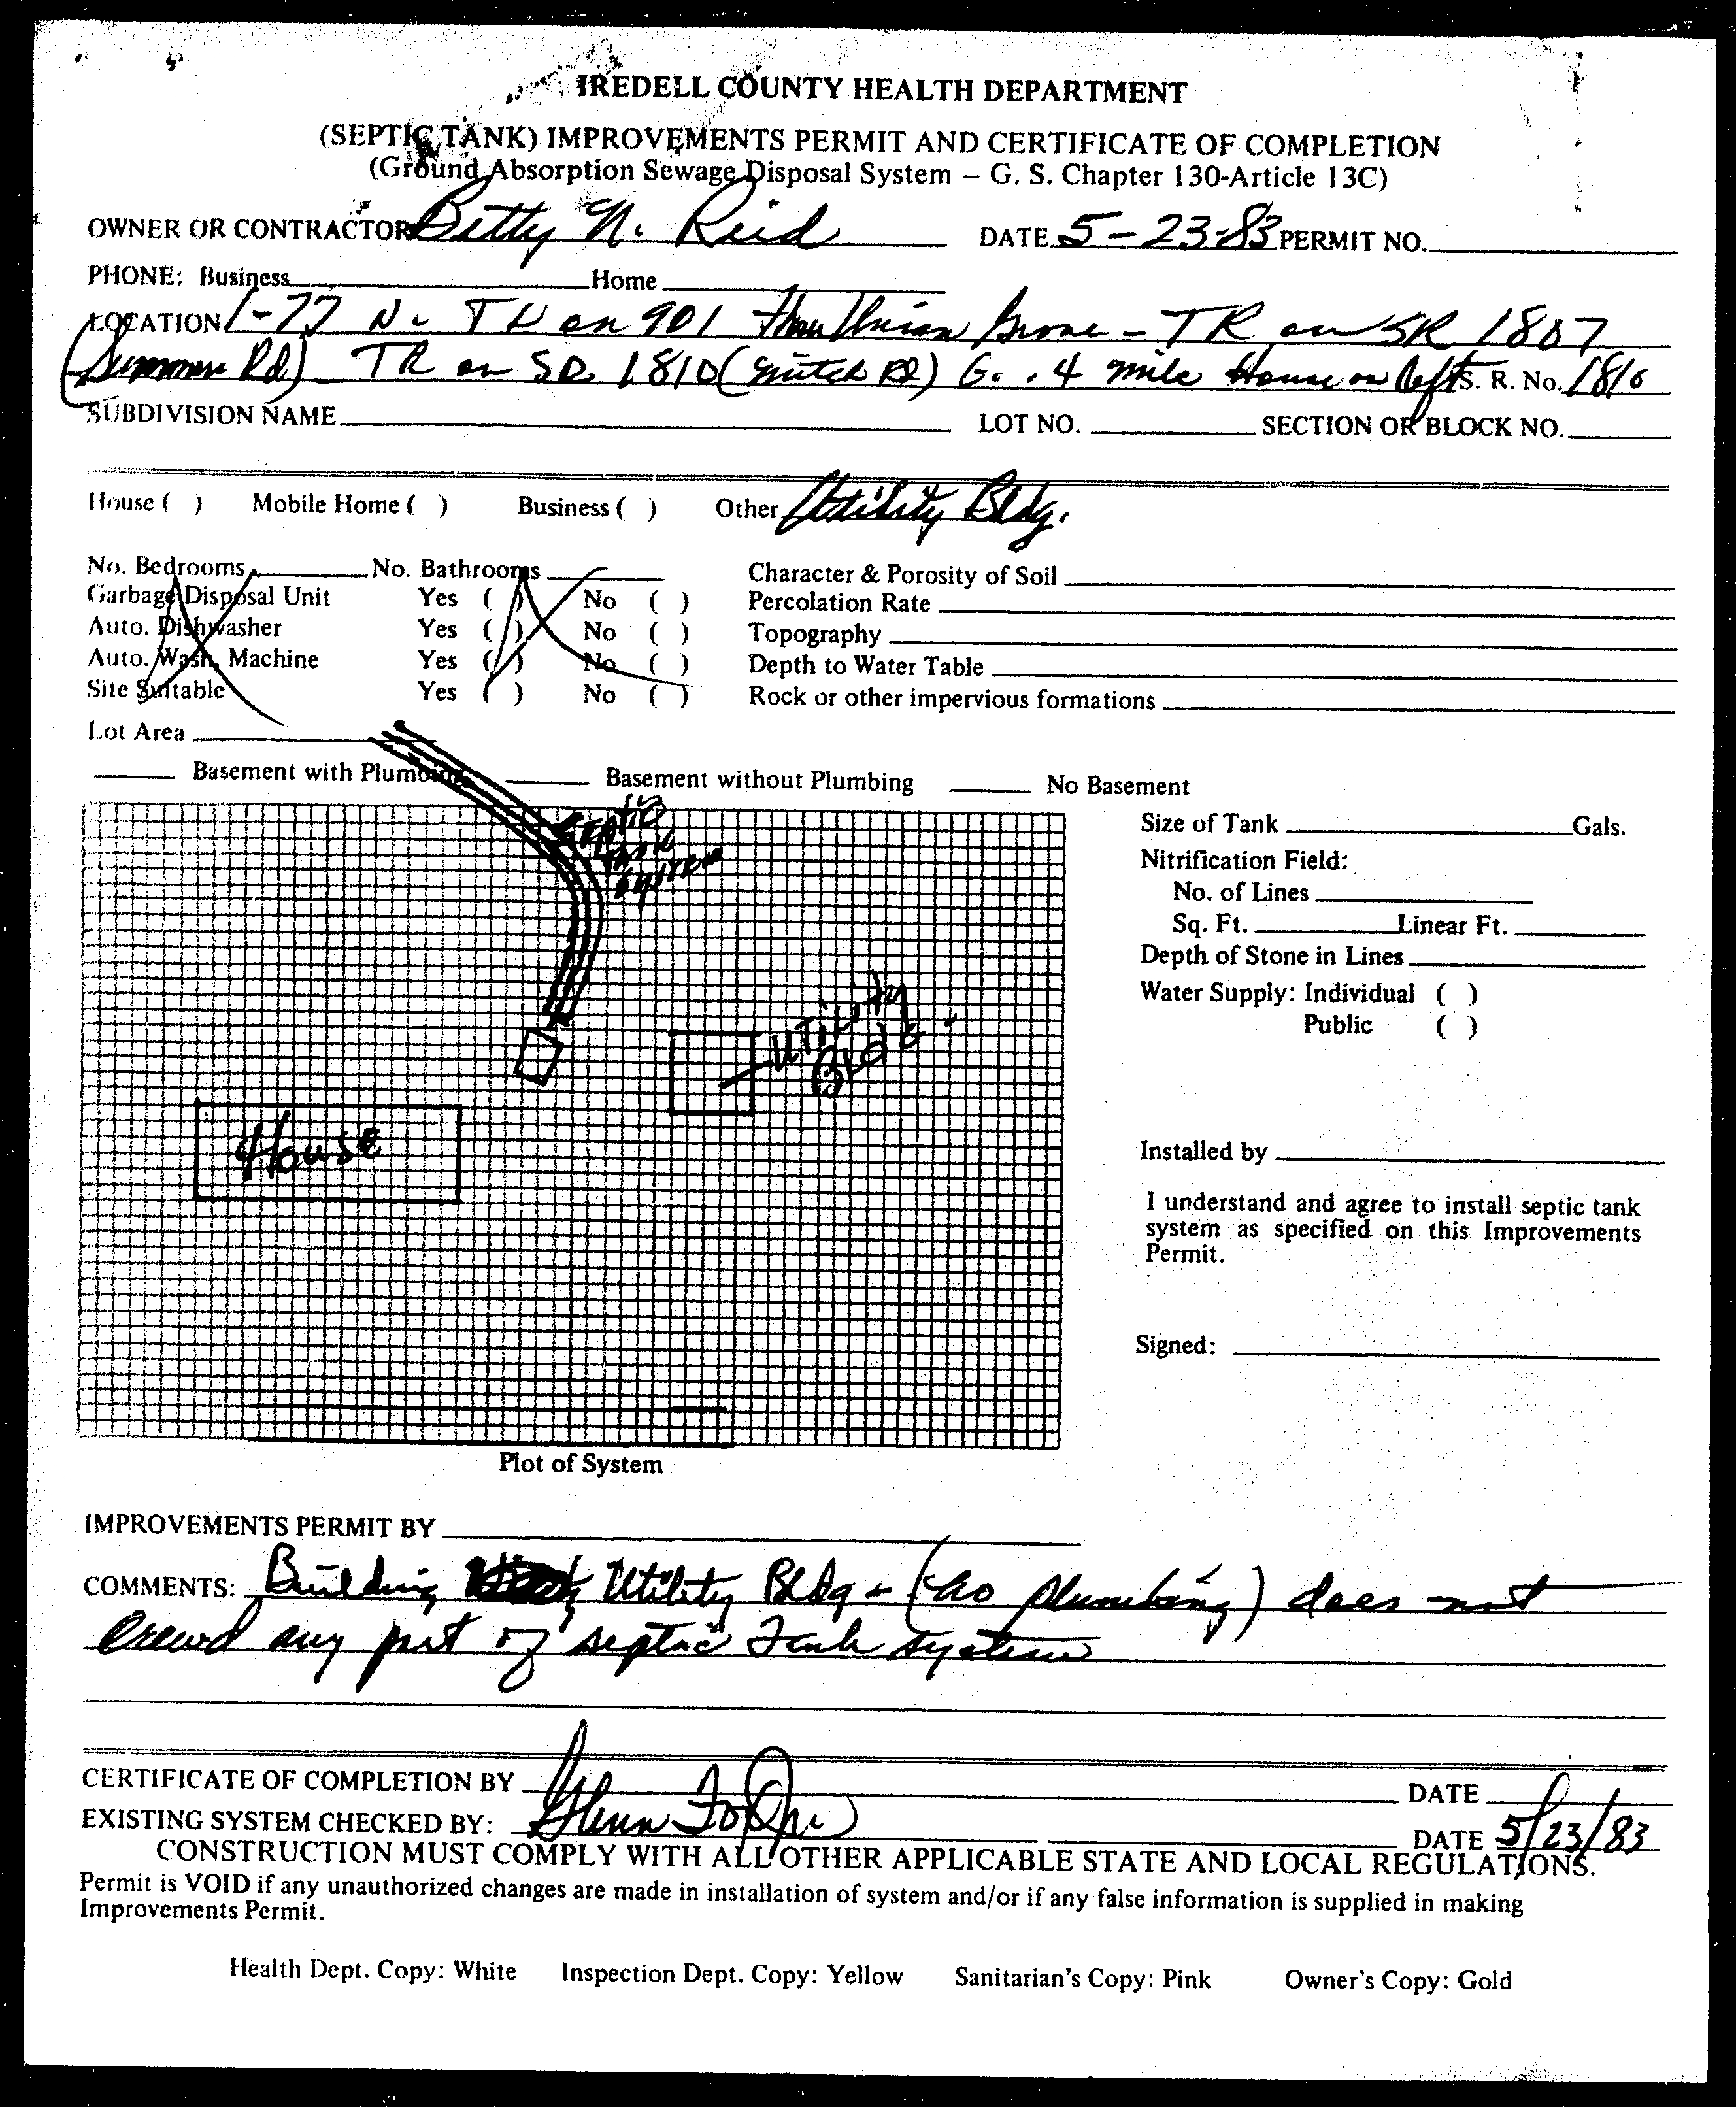 IREDELL COUNTY HEALTH DEPARTMENT
(SEPTIC TANK) IMPROVEMENTS PERMIT AND CERTIFICATE OF COMPLETION
(Ground Absorption Sewage Disposal System – G. S. Chapter 130-Article 13C)
OWNER OR CONTRACTOR Betty N. Reid DATE 5-23-83 PERMIT NO.
PHONE: Business Home
LOCATION I-77 N. TL on 901 thru Union Grove - TR on SR 1807
(Summer Rd) TR on SR 1810 ( Rd) G. .4 mile House on left S. R. No. 1810
SUBDIVISION NAME LOT NO. SECTION OR BLOCK NO.
House ( ) Mobile Home ( ) Business ( ) Other Utility Bldg.
No. Bedrooms No. Bathrooms Character & Porosity of Soil
Garbage Disposal Unit Yes ( ) No ( ) Percolation Rate
Auto. Dishwasher Yes ( ) No ( ) Topography
Auto. Wash. Machine Yes ( ) No ( ) Depth to Water Table
Site Suitable Yes ( ) No ( ) Rock or other impervious formations
Lot Area
Basement with Plumbing Basement without Plumbing No Basement
SEPTIC
TANK
SYSTEM
UTILITY
BLDG.
HOUSE
Plot of System
Size of Tank Gals.
Nitrification Field:
No. of Lines
Sq. Ft. Linear Ft.
Depth of Stone in Lines
Water Supply: Individual ( )
Public ( )
Installed by
I understand and agree to install septic tank
system as specified on this Improvements
Permit.
Signed:
IMPROVEMENTS PERMIT BY
COMMENTS: Building Utility Bldg - (no plumbing) does not
crowd any part of septic tank system
CERTIFICATE OF COMPLETION BY DATE
EXISTING SYSTEM CHECKED BY: Glenn DATE 5/23/83
CONSTRUCTION MUST COMPLY WITH ALL OTHER APPLICABLE STATE AND LOCAL REGULATIONS.
Permit is VOID if any unauthorized changes are made in installation of system and/or if any false information is supplied in making
Improvements Permit.
Health Dept. Copy: White Inspection Dept. Copy: Yellow Sanitarian's Copy: Pink Owner's Copy: Gold